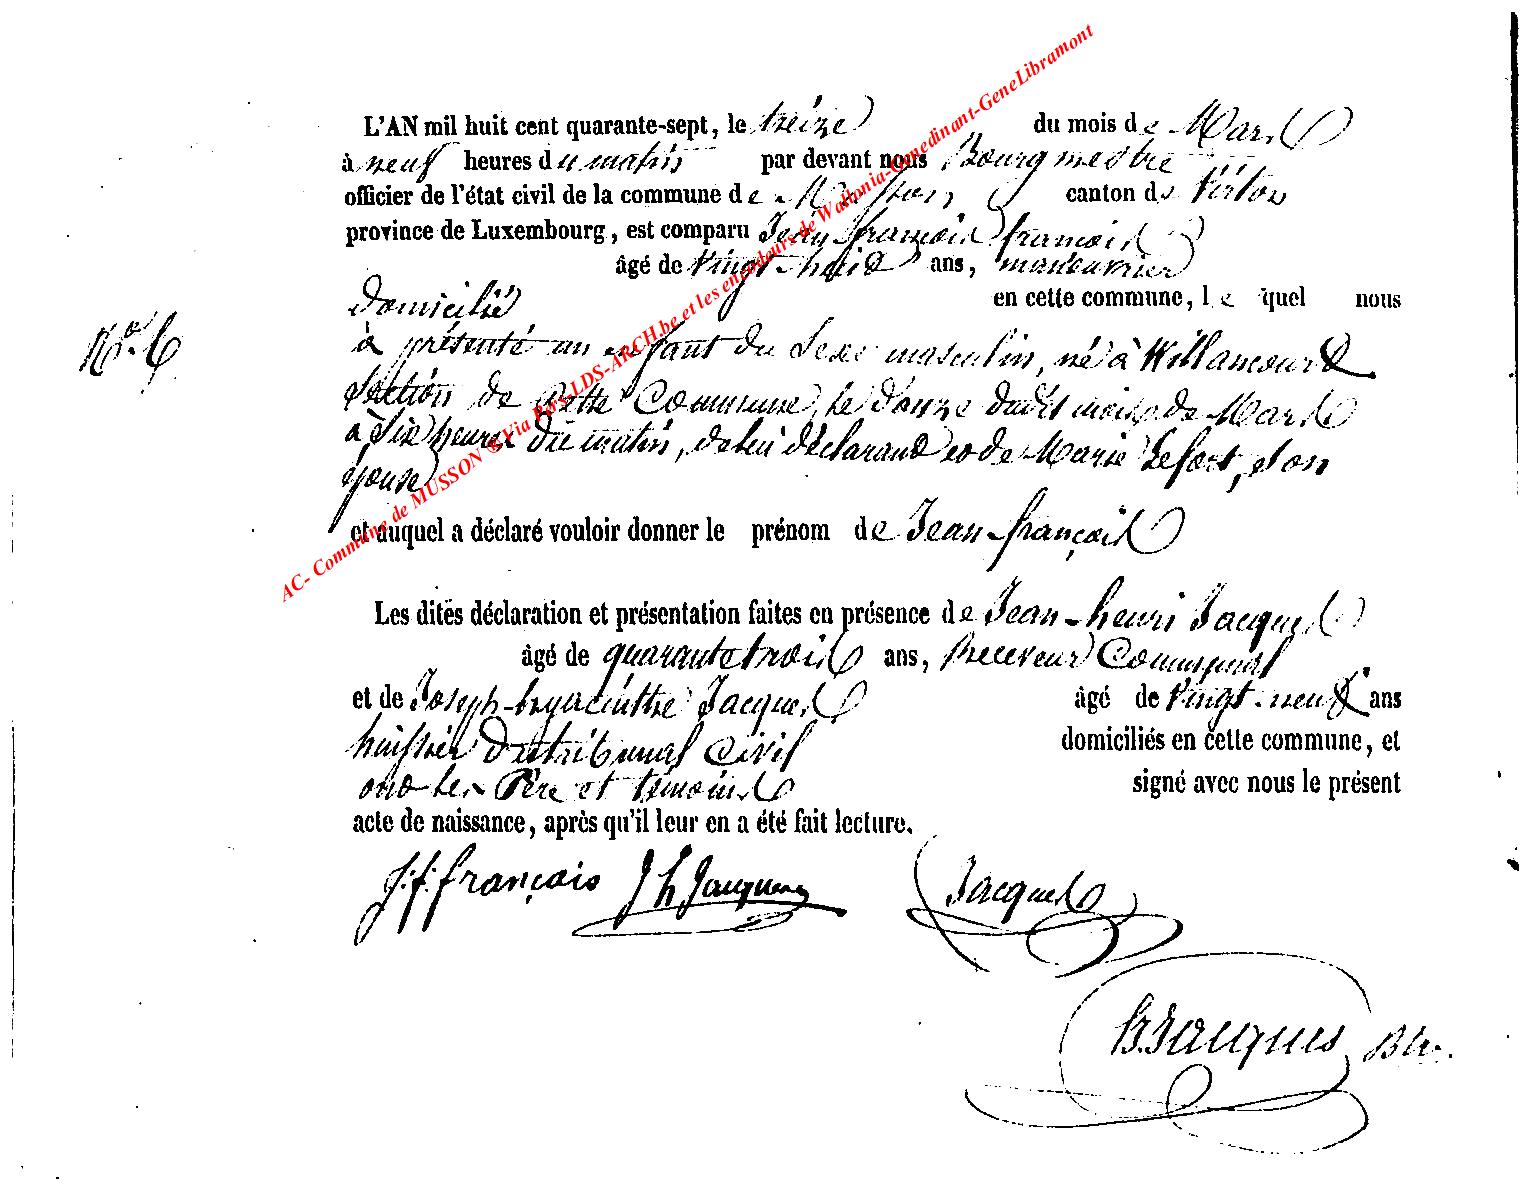 L'AN mil huit cent quarante-sept, le treize du mois de Mars
à neuf heures du matin par devant nous Bourgmestre
officier de l'état civil de la commune de Musson canton de Virton
province de Luxembourg, est comparu Jean françois françois
âgé de vingt-huit ans, manœuvrier
domicilié en cette commune, lequel nous
à présenté un enfant du sexe masculin, né à Willancourt
section de cette Commune, le douze dudit mois de Mars
à six heures du matin, de lui déclarant et de Marie Lefort, son
épouse
et auquel a déclaré vouloir donner le prénom de Jean-françois
Les dites déclaration et présentation faites en présence de Jean-henri Jacques
âgé de quarante trois ans, Receveur Communal
et de Joseph-hyacinthe Jacques âgé de vingt-neuf ans
huissier du tribunal Civil domiciliés en cette commune, et
ont les Père et témoins signé avec nous le présent
acte de naissance, après qu'il leur en a été fait lecture.
N° 6
J. f. françois J h Jacques Jacques
Jacques
AC- Commune de MUSSON ® Via Pors-LDS-ARCH.be et les encodeurs de Wallonia-Genedinant-GeneLibramont